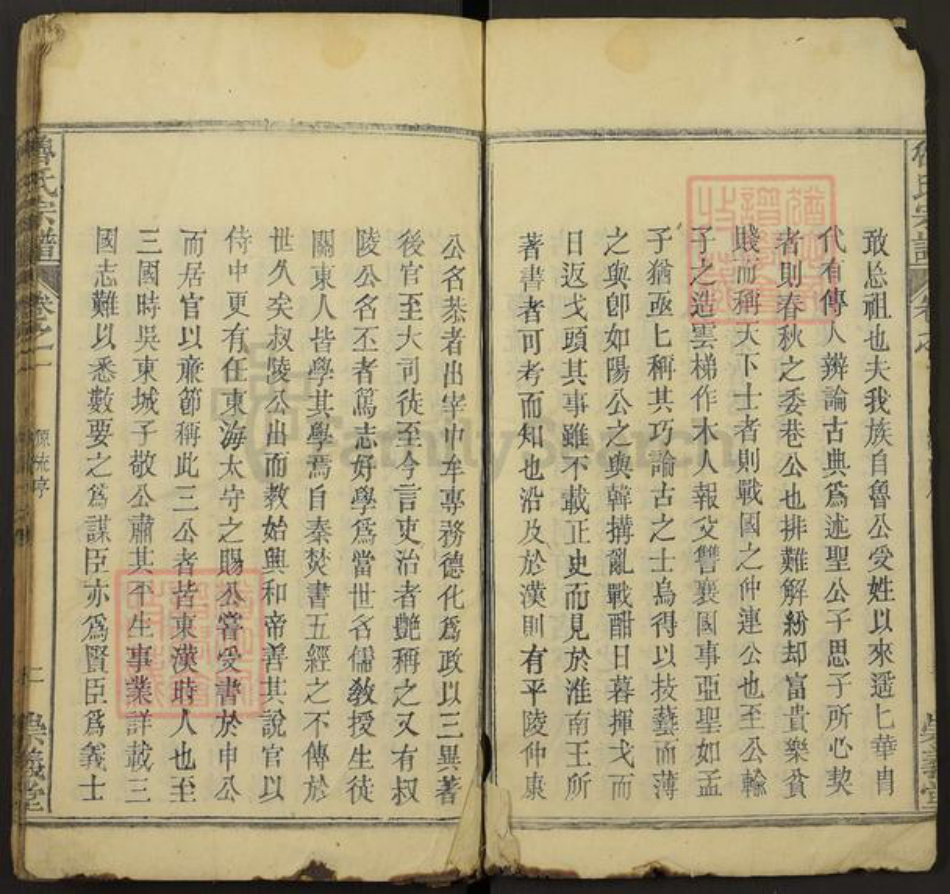 敢忘祖也夫我族自魯公受姓以來遥七華胄
代有傳人辨論古典爲述聖公子思子所心契
者則春秋之委巷公也排難解紛却富貴樂貧
賤而稱天下士者則戰國之仲連公也至公輸
子之造雲梯作木人報父讐襄國事亞聖如孟
子猶亟七稱其巧論古之士烏得以技藝而薄
之與卽如陽公之與韓搆亂戰酣日暮揮戈而
日返戈頭其事雖不載正史而見於淮南王所
著書者可考而知也沿及於漢則有平陵仲康
公名恭者出宰中牟專務德化爲政以三異著
後官至大司徒至今言吏治者艶稱之又有叔
陵公名丕者篤志好學爲當世名儒敎授生徒
關東人皆學其學焉自秦焚書五經之不傳於
世久矣叔陵公出而教始興和帝善其說官以
侍中更有任東海太守之賜公嘗受書於申公
而居官以亷節稱此三公者皆東漢時人也至
三國時吳東城子敬公肅其平生事業詳載三
國志難以悉數要之爲謀臣亦爲賢臣爲義士
魯氏宗譜
卷之一
源流序
崇義堂